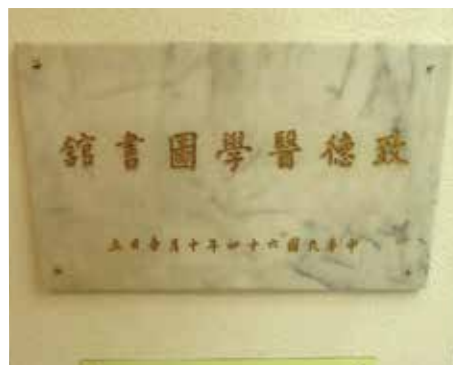 致德醫學圖書館
中華民國六十四年十月吉日立